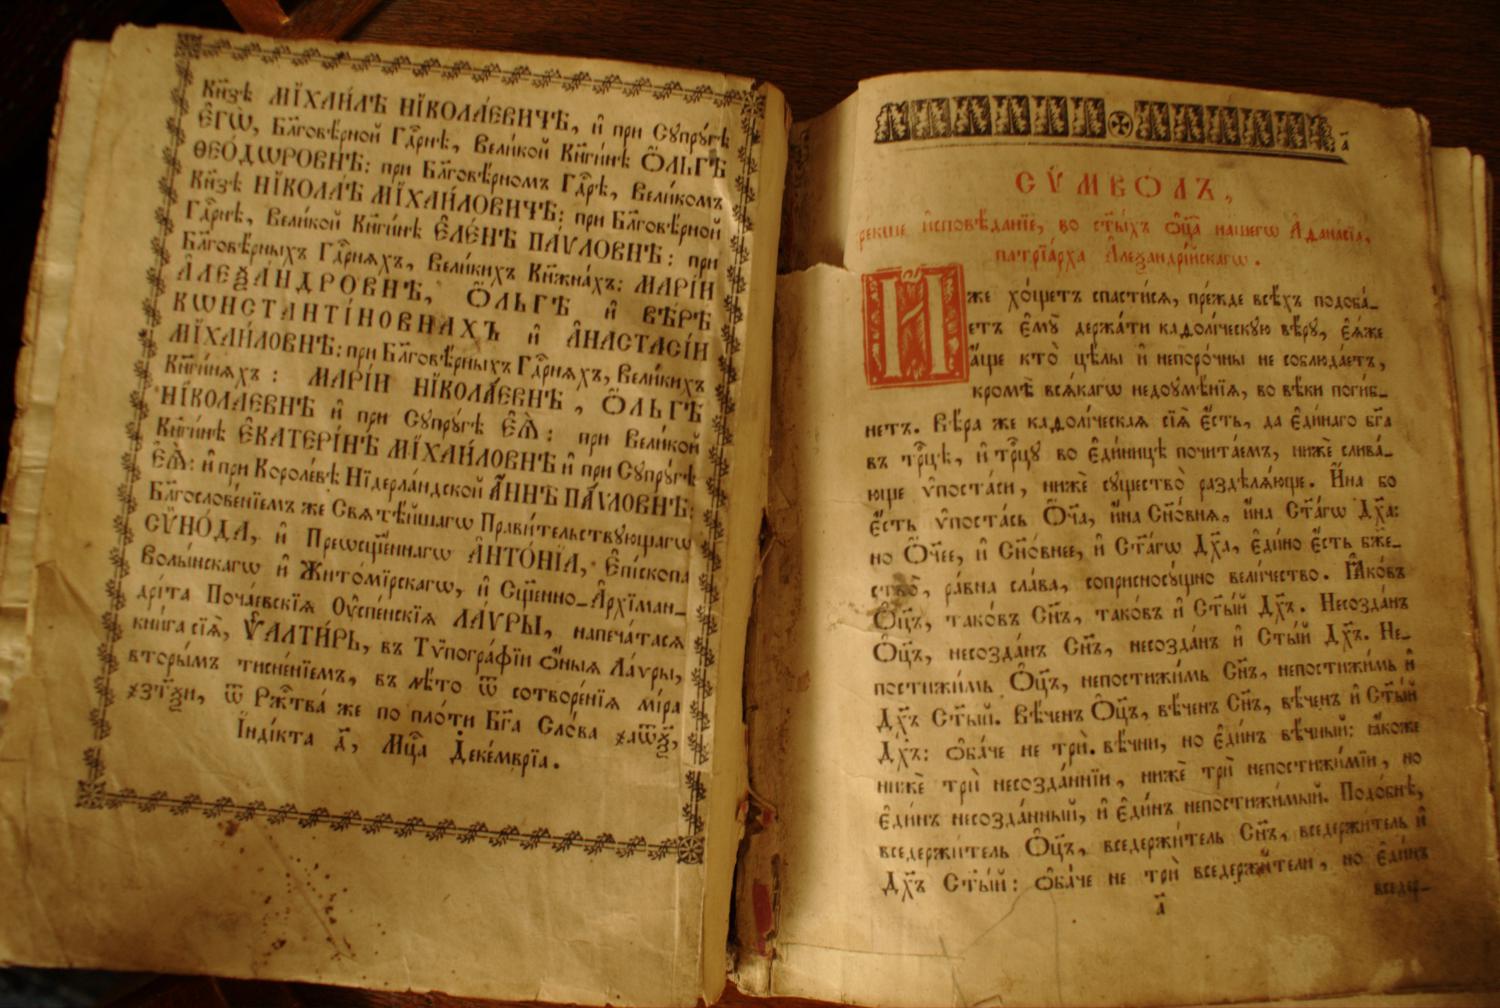 Кн҃зѣ МІХАИ́ЛѢ НІКОЛА́ЕВИЧѢ, и҆ при Сꙋпрꙋ́гѣ
Е҆ГѠ̀, Бл҃говѣ́рной Гдⷭ҇рнѣ, Вели́кой Кн҃ги́нѣ Ѻ҆́ЛЬГѢ
ѲЕО́ДѠРОВНѢ: при Бл҃говѣ́рномъ Гдⷭ҇рѣ, Вели́комъ
Кн҃зѣ НІКОЛА́Ѣ МІХАИ́ЛОВИЧѢ: при Бл҃говѣ́рной
Гдⷭ҇рнѣ, Вели́кой Кн҃ги́нѣ Е҆ЛЕ́НѢ ПА́ѴЛОВНѢ: при
Бл҃говѣ́рныхъ Гдⷭ҇рняхъ, Вели́кихъ Кн҃жна́хъ: МАРІ́И
А҆ЛЕѮА́НДРОВНѢ, Ѻ҆́ЛЬГѢ и҆ ВѢ́РѢ
КѠНСТАНТІ́НОВНАХЪ и҆ А҆НАСТАСІ́И
МІХАИ́ЛОВНѢ: при Бл҃говѣ́рныхъ Гдⷭ҇рняхъ, Вели́кихъ
Кн҃ги́няхъ: МАРІ́И НІКОЛА́ЕВНѢ, Ѻ҆́ЛЬГѢ
НІКОЛА́ЕВНѢ и҆ при Сꙋпрꙋ́гѣ Е҆Ѧ̀: при Вели́кой
Кн҃ги́нѣ Е҆КАТЕРІ́НѢ МІХАИ́ЛОВНѢ и҆ при Сꙋпрꙋ́гѣ
Е҆Ѧ̀: и҆ при Короле́вѣ Нідерла́ндской А҆́ННѢ ПА́ѴЛОВНѢ:
Бл҃гослове́нїемъ же Свѧтѣ́йшагѡ Прави́тельствꙋющагѡ
СѴНО́ДА, и҆ Преѡсщ҃е́ннагѡ А҆НТО́НІА, Е҆пі́скопа
Волы́нскагѡ и҆ Жито́мірскагѡ, и҆ Сщ҃е́нно-А҆рхіман-
дрі́та Поча́евскїѧ Оу҆спе́нскїѧ ЛА́ѴРЫ, напеча́тасѧ
кни́га сїѧ̀, ѰАЛТИ́РЬ, въ Тѵпогра́фїи ѻ҆́ныѧ Ла́ѵры,
вторы́мъ тисне́нїемъ, въ лѣ́то ѿ сотворе́нїѧ мі́ра
҂зт҃ѯи, ѿ Рж҃тва́ же по пло́ти Бг҃а Сло́ва ҂аѿ҃ѯ,
І҆ндїкта г҃, Мц҃а Деке́мврїа.
а҃
СѴ́МВОЛЪ,
ре́кше и҆сповѣ́данїе, во ст҃ы́хъ ѻ҆ц҃а̀ на́шегѡ А҆ѳана́сїа,
патрїа́рха А҆леѯандрі́йскагѡ.
И҆́же хо́щетъ спасти́сѧ, пре́жде всѣ́хъ подоба́-
етъ є҆мꙋ̀ держа́ти каѳолі́ческꙋю вѣ́рꙋ, є҆ѧ́же
а҆́ще кто̀ цѣ́лы и҆ непоро́чны не соблюда́етъ,
кромѣ̀ всѧ́кагѡ недоꙋмѣ́нїѧ, во вѣ́ки поги́б-
нетъ. Вѣ́ра же каѳолі́ческаѧ сїѧ̀ є҆́сть, да є҆ди́наго бг҃а
въ трⷪ҇цѣ, и҆ трⷪ҇цꙋ во є҆ди́ницѣ почита́емъ, нижѐ слива́-
юще ѵ҆поста́си, нижѐ сꙋщество̀ раздѣлѧ́юще. И҆́на бо
є҆́сть ѵ҆поста́сь Ѻ҆́ч҃а, и҆́на Сн҃о́внѧ, и҆́на Ст҃а́гѡ Дх҃а:
но Ѻ҆́ч҃ее, и҆ Сн҃о́внее, и҆ Ст҃а́гѡ Дх҃а, є҆ди́но є҆́сть бж҃е-
ство̀, ра́вна сла́ва, соприсносꙋ́щно вели́чество. Ꙗ҆ко́въ
Ѻ҆ц҃ъ, тако́въ Сн҃ъ, тако́въ и҆ Ст҃ы́й Дх҃ъ. Несозда́нъ
Ѻ҆ц҃ъ, несозда́нъ Сн҃ъ, несозда́нъ и҆ Ст҃ы́й Дх҃ъ. Не-
постижи́мь Ѻ҆ц҃ъ, непостижи́мь Сн҃ъ, непостижи́мь и҆
Дх҃ъ Ст҃ы́й. Вѣ́ченъ Ѻ҆ц҃ъ, вѣ́ченъ Сн҃ъ, вѣ́ченъ и҆ Ст҃ы́й
Дх҃ъ: ѻ҆ба́че не трѝ вѣ́чни, но є҆ди́нъ вѣ́чный: ꙗ҆́коже
нижѐ трѝ несозда́ннїи, нижѐ трѝ непостижи́мїи, но
є҆ди́нъ несозда́нный, и҆ є҆ди́нъ непостижи́мый. Подо́бнѣ,
вседержи́тель Ѻ҆ц҃ъ, вседержи́тель Сн҃ъ, вседержи́тель и҆
Дх҃ъ Ст҃ы́й: ѻ҆ба́че не трѝ вседержи́тели, но є҆ди́нъ
а҃
вседер-